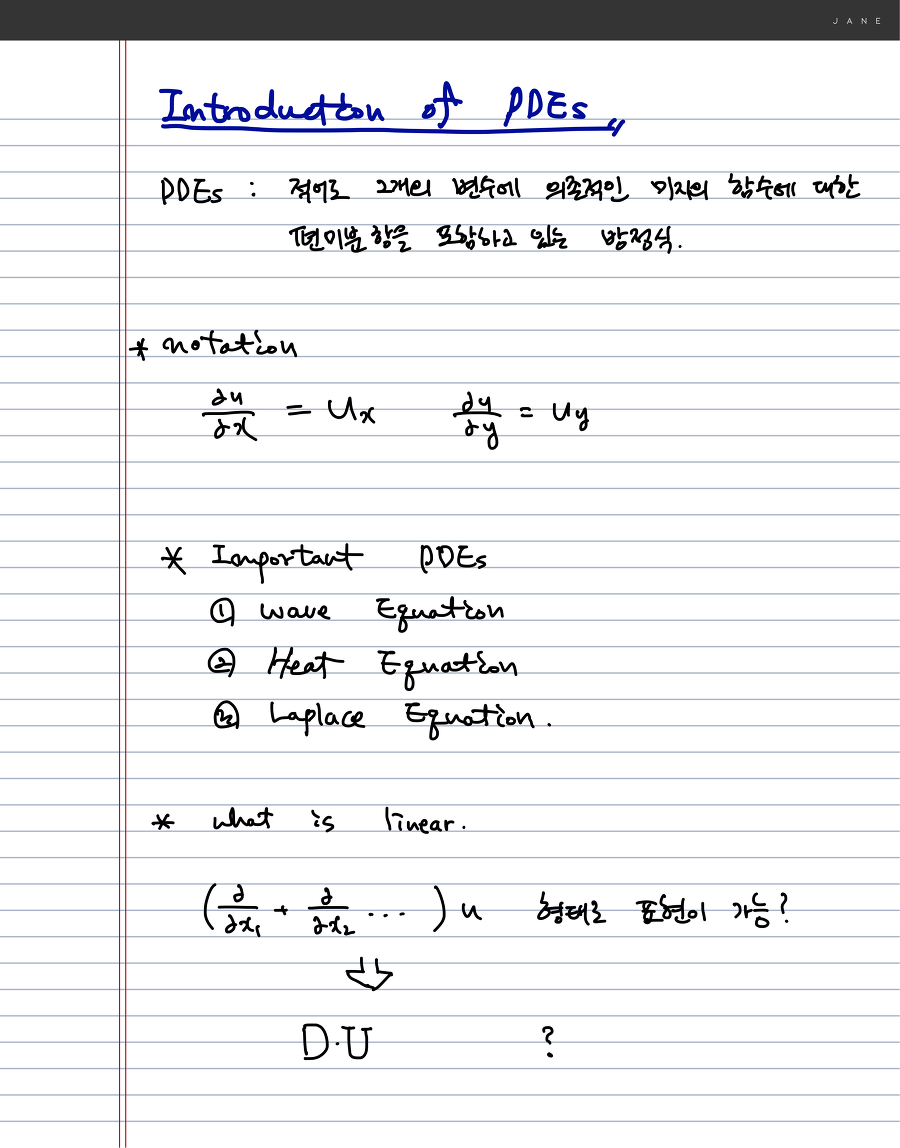 JANE
Introduction of PDEs
PDEs : 적어도 2개의 변수에 의존적인 미지의 함수에 대한
편미분항을 포함하고 있는 방정식.
* notation
∂u/∂x = Ux ∂u/∂y = Uy
* Important PDEs
① wave Equation
② Heat Equation
③ Laplace Equation.
* what is linear.
(∂/∂x₁ + ∂/∂x₂ ... ) u 형태로 표현이 가능?
⇓
D·U ?